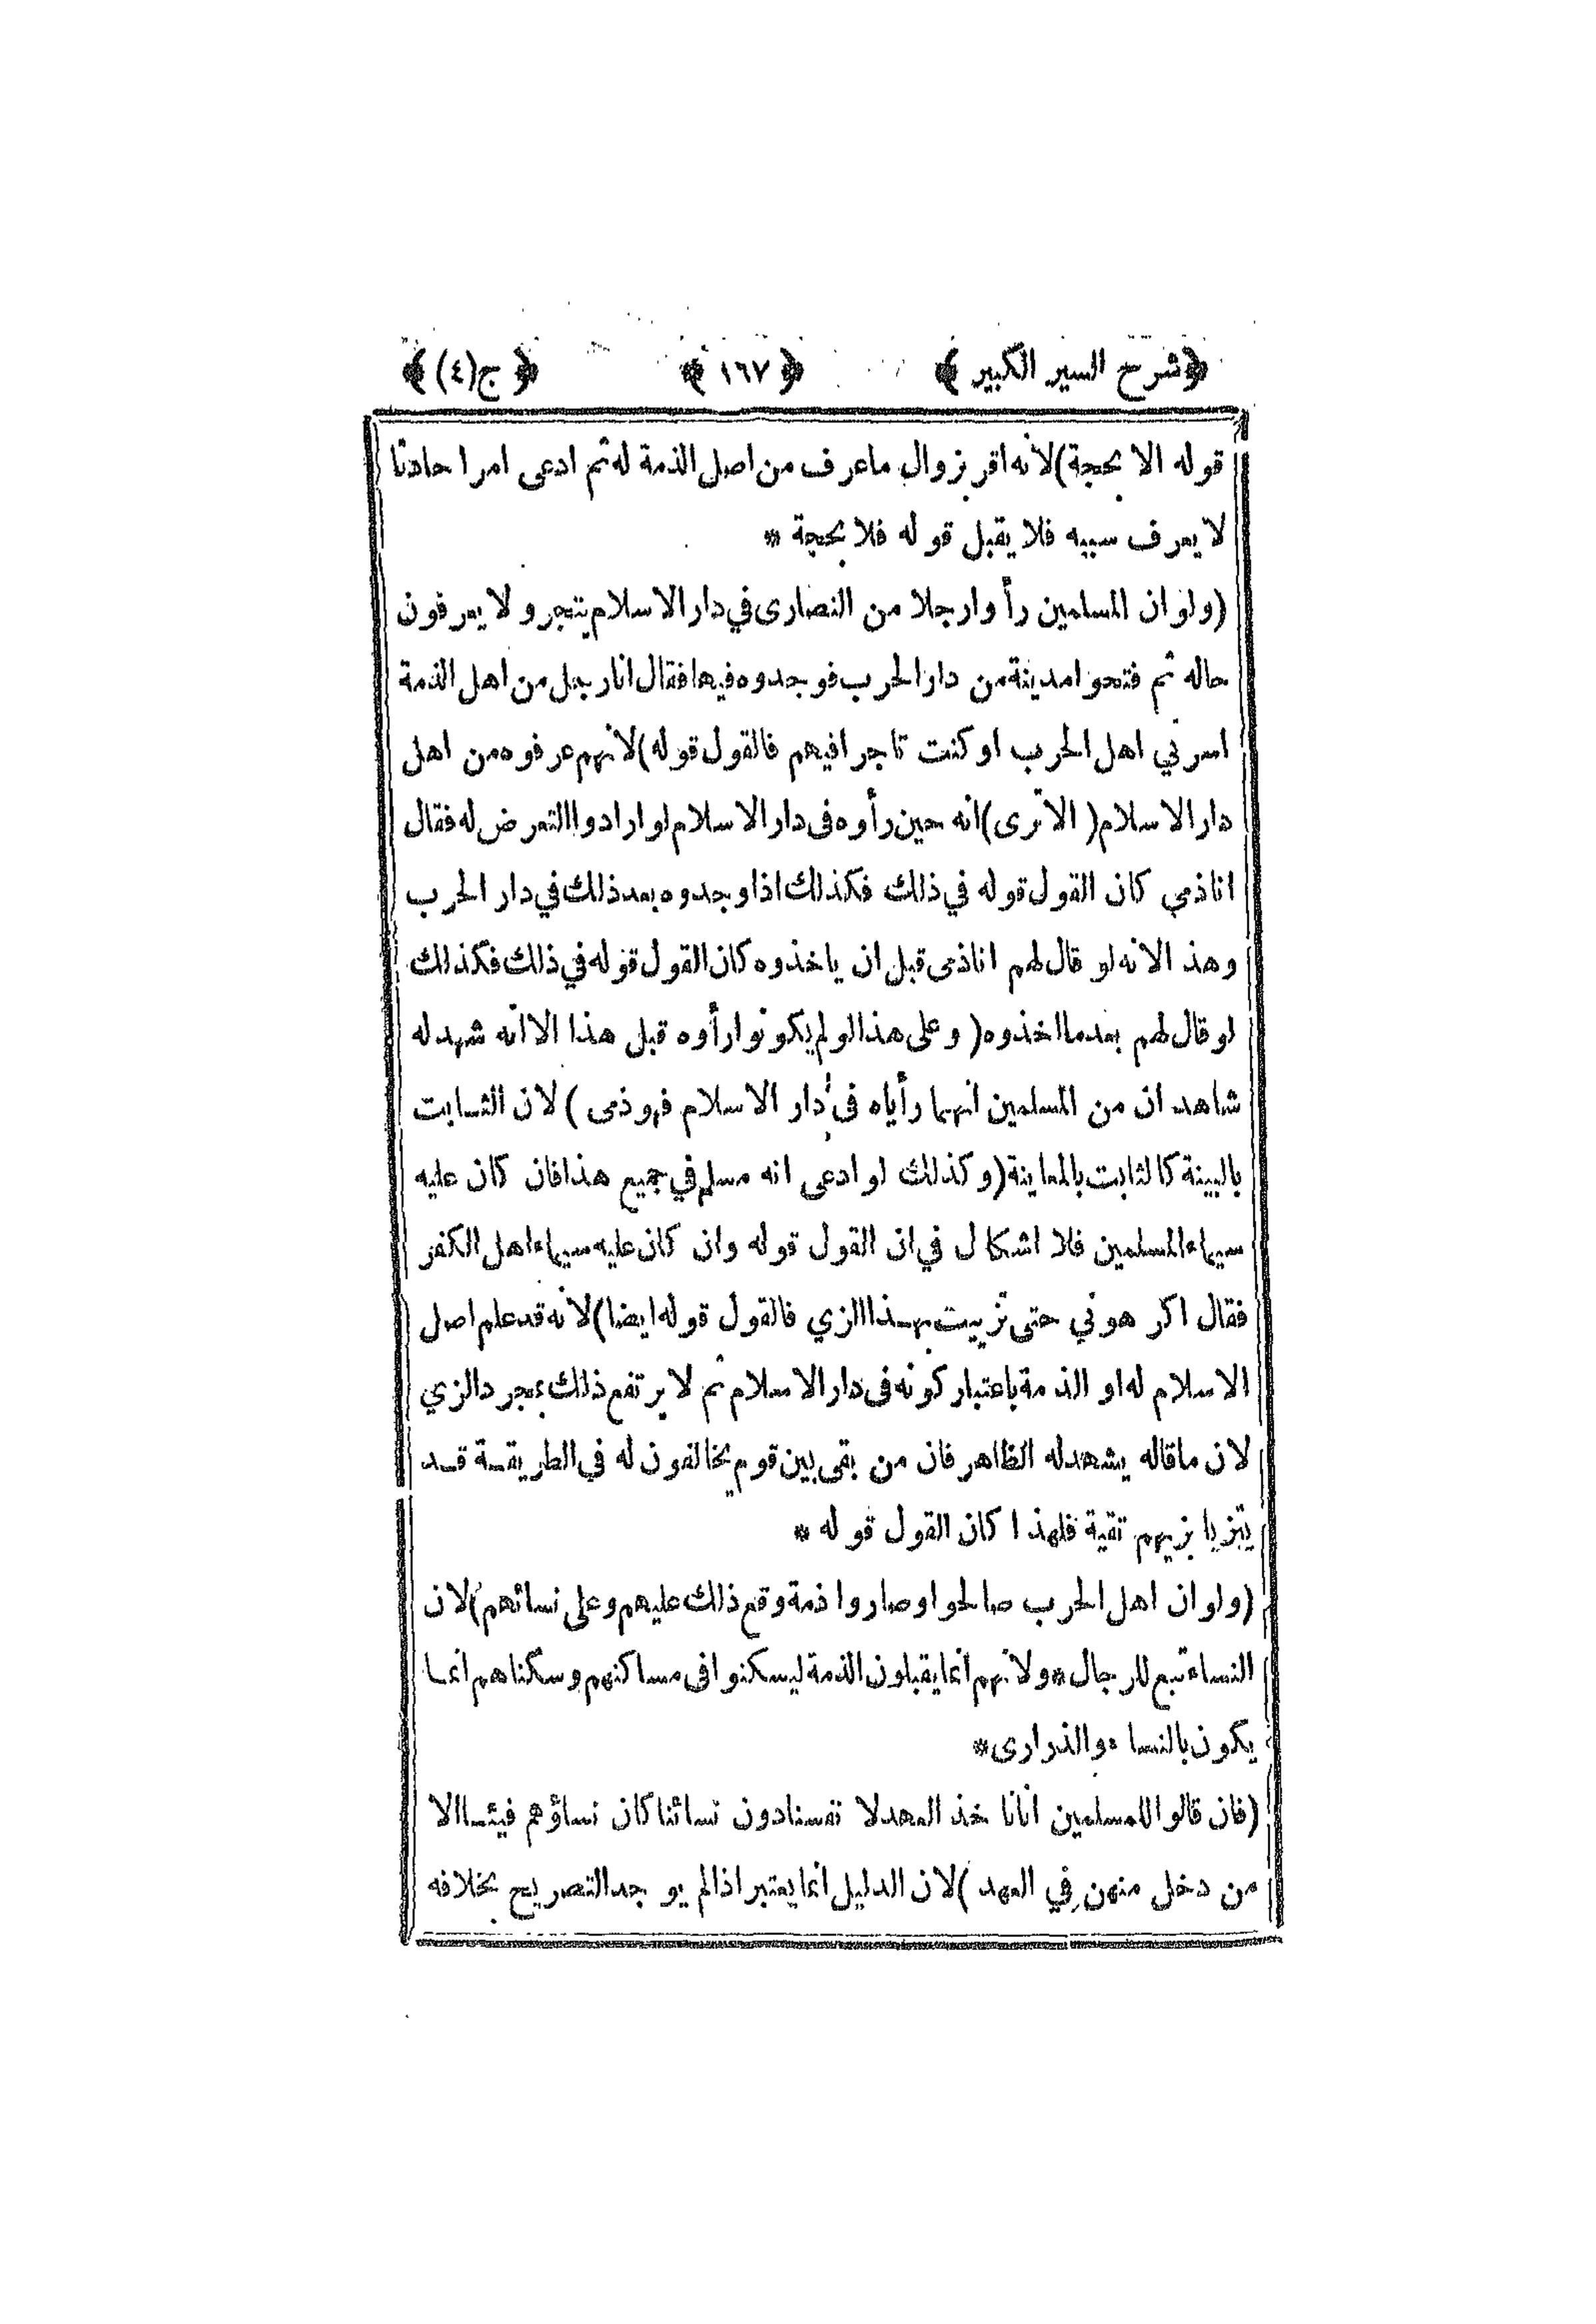 ﴿شرح السير الكبير﴾ ﴿١٦٧﴾ ﴿ج(٤)﴾
قوله الا بحجة)لأنه اقر بزوال ماعرف من اصل الذمة له ثم ادعى امرا حادثا
لا يعرف سببه فلا يقبل قوله فلا بحجة *
(ولو ان المسلمين رأوا رجلا من النصارى في دار الاسلام يتجر ولا يعرفون
حاله ثم فتحوا مدينة من دار الحرب فوجدوه فيها فقال انا رجل من اهل الذمة
اسرني اهل الحرب او كنت تاجرا فيهم فالقول قوله)لأنهم عرفوه من اهل
دار الاسلام(الا ترى)انه حين رأوه فى دار الاسلام لو ارادوا التعرض له فقال
انا ذمي كان القول قوله في ذلك فكذلك اذا وجدوه بعد ذلك في دار الحرب
وهذا لانه لو قال لهم انا ذمى قبل ان ياخذوه كان القول قوله في ذلك فكذلك
لو قال لهم بعد ما اخذوه(وعلى هذا لو لم يكونوا رأوه قبل هذا الا انه شهد له
شاهد ان من المسلمين انهما رأياه فى دار الاسلام فهو ذمى)لان الثابت
بالبينة كالثابت بالمعاينة(وكذلك لو ادعى انه مسلم في جميع هذا فان كان عليه
سيماء المسلمين فلا اشكال في ان القول قوله وان كان عليه سيماء اهل الكفر
فقال اكرهوني حتى تزييت بهذا الزي فالقول قوله ايضا)لأنه قد علم اصل
الاسلام له او الذمة باعتبار كونه فى دار الاسلام ثم لا يرتفع ذلك بمجرد الزي
لان ما قاله يشهد له الظاهر فان من بقى بين قوم يخالفون له في الطريقة قد
يتزيا بزيهم تقية فلهذا كان القول قوله *
(ولو ان اهل الحرب صالحوا وصاروا ذمة وقع ذلك عليهم وعلى نسائهم)لان
النساء تبع للرجال*ولأنهم انما يقبلون الذمة ليسكنوا فى مساكنهم وسكناهم انما
يكون بالنساء والذرارى*
(فان قالوا للمسلمين انا ناخذ العهد لا نفسنا دون نسائنا كان نساؤهم فيئا الا
من دخل منهن في العهد)لان الدليل انما يعتبر اذا لم يوجد التصريح بخلافه